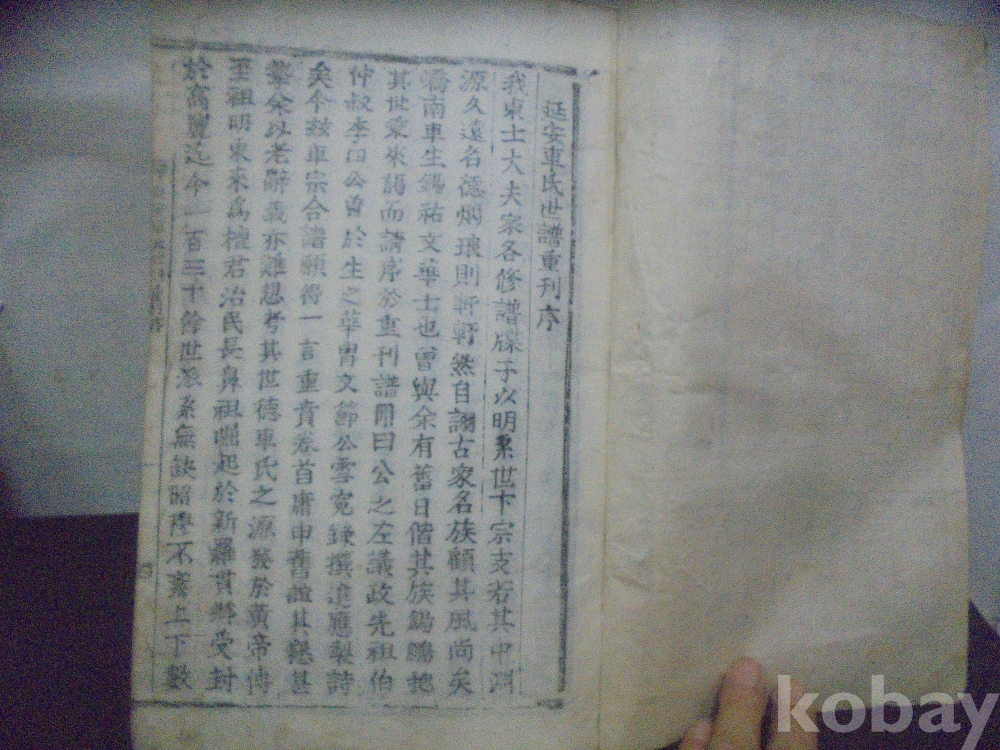 延安車氏世譜重刊序
我東士大夫家各修譜牒子以明累世下宗支若其中淵
源久遠名德炳琅則軒軒然自詡古家名族顧其風尚矣
嶠南車生錫祐文華士也曾與余有舊日偕其族錫鵬抱
其世乘來謁而請序於重刊譜開曰公之左議政先祖伯
仲叔季四公曾於生之華胄文節公雪冤錄撰進應製詩
矣今玆車宗合譜願得一言重賁卷首庸申舊誼其懇甚
摯余以老辭義亦難思考其世德車氏之源發於黃帝傳
至祖明東來爲檀君治民長鼻祖崛起於新羅貫緜受封
於高麗迄今一百三十餘世派系無缺昭陸不紊上下數
kobay